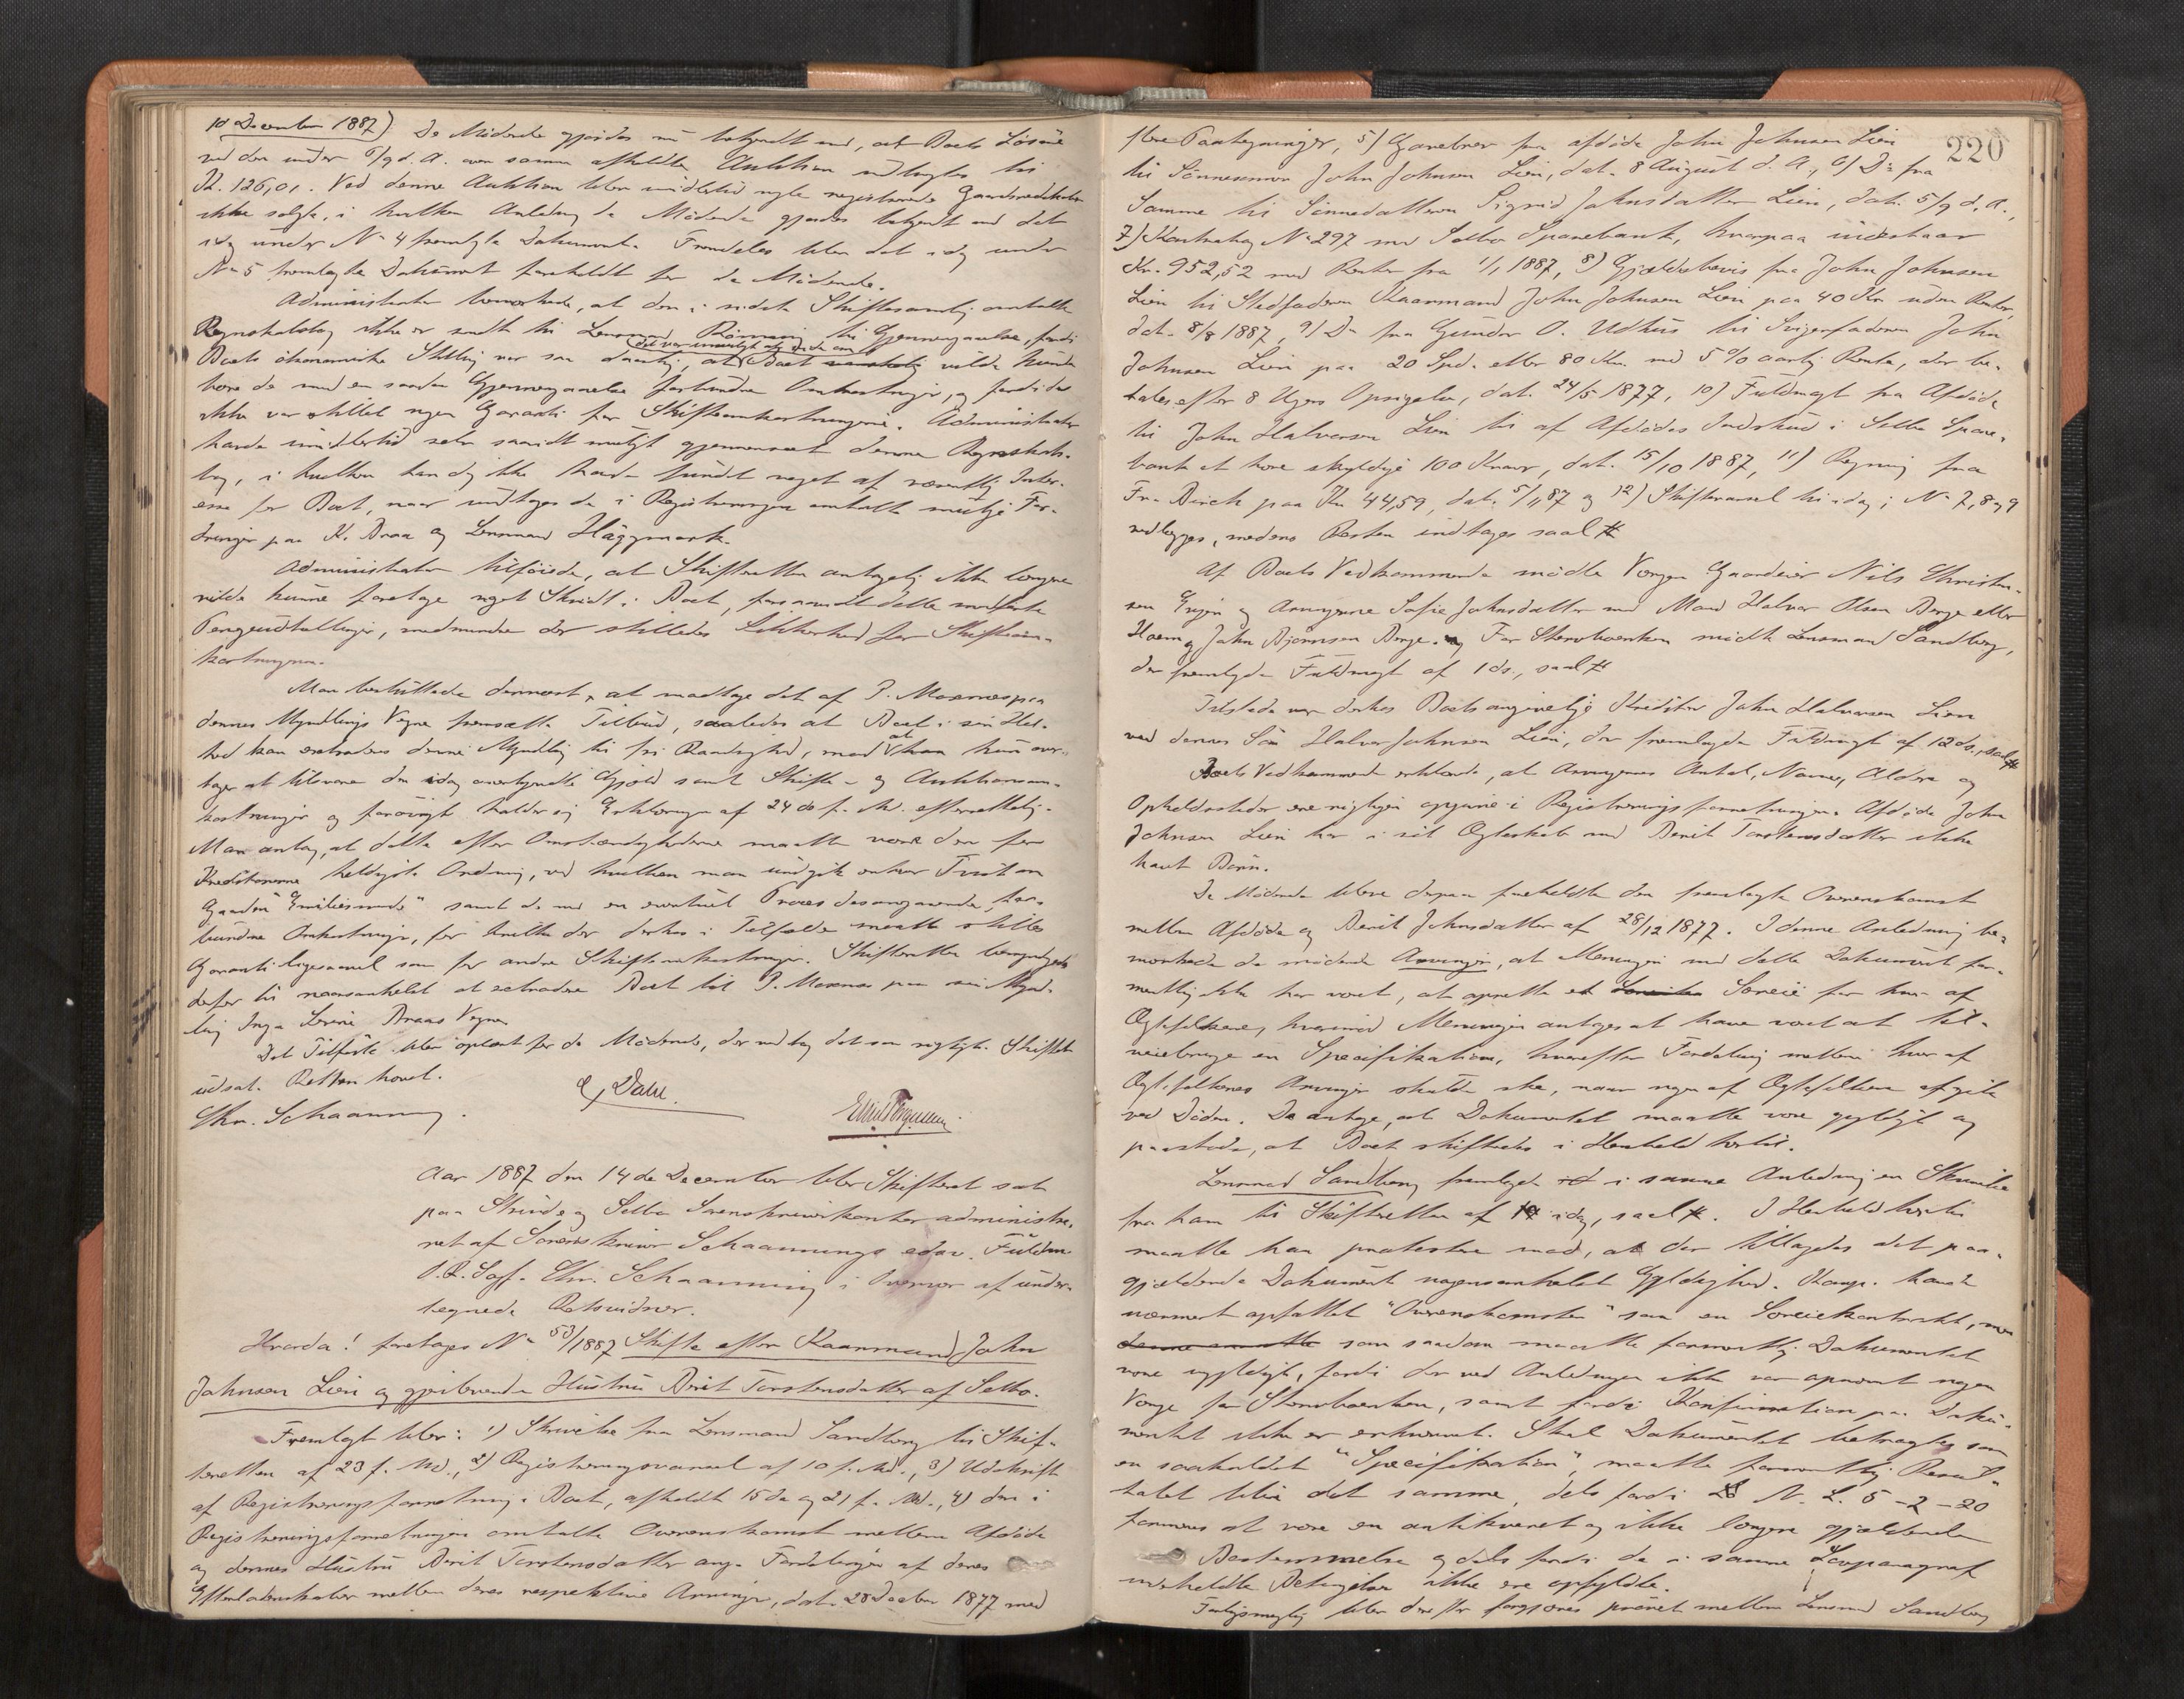 10 December 1887) De Mødende gjordes nu bekjendt med, at Boets Løsøre
ved den under 6/9 d. A. over samme afholdte Auktion udbragtes til
Kr. 126,01. Ved denne Auktion blev imidlertid nogle registrerede Gaardsredskaber
ikke solgte, i hvilken Anledning de Mødende gjordes bekjendt med det
idag under No 4 fremlagte Dokument. Fremdeles blev det idag under
No 5 fremlagte Dokument foreholdt for de Mødende.
Administrator bemærkede, at den i sidste Skiftesamling omtalte
Regnskabsbog ikke er sendt til Lensmand Rønning til Gjennemgaaelse, fordi
Boets økonomiske Stilling var saa daarlig, at det var umuligt at vide om Boet vilde kunne
bære de med en saadan Gjennemgaaelse forbundne Omkostninger, og fordi der
ikke var stillet nogen Garanti for Skifteomkostningerne. Administrator
havde imidlertid selv saavidt muligt gjennemseet denne Regnskabs-
bog, i hvilken han dog ikke havde fundet noget af væsentlig Inter-
esse for Boet, naar undtages de i Registreringen omtalte mulige For-
dringer paa K. Braa og Lensmand Häggmark.
Administrator tilføiede, at Skifteretten antagelig ikke længere
vilde kunne foretage noget Skridt i Boet, forsaavidt dette medførte
Pengeudtællinger, medmindre der stilledes Sikkerhed for Skifteom-
kostningerne.
Man besluttede dernæst, at modtage det af P. Moxnes paa
dennes Myndlings Vegne fremsatte Tilbud, saaledes at Boet i sin Hel-
hed kan extraderes denne Myndling til fri Raadighed, mod at hun over-
tager at tilsvare den idag anerkjendte Gjæld samt Skifte- og Auktionsom-
kostninger og forøvrigt holder sig Erklæringen af 24de f. M. efterrettelig.
Man antog, at dette efter Omstændighederne maatte være den for
Kreditorerne heldigste Ordning, ved hvilken man undgik enhver Tvist om
Gaarden "Emiliesminde" samt de med en eventuel Proces desangaaende for-
bundne Omkostninger, for hvilke der derhos i Tilfælde maatte stilles
Garanti ligesaavel som for andre Skifteomkostninger. Skifteretten
derfor til at extradere Boet til P. Moxnes paa sin Mynd-
lings Inga Braas Vegne.
Det Tilførte blev oplæst for de Mødende, der vedtog det som rigtigt. Skiftet
udsat. Retten hævet.
Chr. Schaanning. Dahl.
Aar 1887 den 14de December blev Skifteret sat
paa Strinde og Selbo Sorenskriverkontor administre-
ret af Sorenskriver Schaannings edsv. Fuldm.
O.R.Sagf. Chr. Schaanning i Overvær af under-
tegnede Retsvidner.
Hvorda! foretoges No 53/1887 Skifte efter Kaarmand John
Johnsen Lien og gjenlevende Hustru Berit Torstensdatter af Selbo.
Fremlagt blev: 1) Skrivelse fra Lensmand Sandberg til Skif-
teretten af 23 f. Md., 2) Registreringsvarsel af 10 f. Md., 3) Udskrift
af Registreringsforretning i Boet, afholdt 15de og 21 f. Md., 4) den i
Registreringsforretningen omtalte Overenskomst mellem Afdøde
og dennes Hustru Berit Torstensdatter ang. Fordelingen af deres
Efterladenskaber mellem deres respektive Arvinger, dat. 28 Decbr 1877 med
220
flere Paategninger, 5) Gavebrev fra afdøde John Johnsen Lien
til Sønnesønnen John Johnsen Lien, dat. 8 August d. A., 6) Do fra
Samme til Sønnedatteren Sigrid Johnsdatter Lien, dat. 5/9 d. A.,
7) Kontrabog No 297 med Selbo Sparebank, hvorpaa indestaar
Kr. 952,52 med Renter fra 1/1 1887, 8) Gjældsbevis fra John Johnsen
Lien til Stedfaderen Kaarmand John Johnsen Lien paa 40 Kr. uden Renter,
dat. 8/8 1887, 9) Do fra Gunder O. Udhus til Svigerfaderen John
Johnsen Lien paa 20 Spd. eller 80 Kr. med 5 % aarlig Rente, der be-
tales efter 8 Ugers Opsigelse, dat. 24/5 1877, 10) Fuldmagt fra Afdøde
til John Halvorsen Lien til af Afdødes Indskud i Selbo Spare-
bank at hæve skyldige 100 Kroner, dat. 15/10 1887, 11) Regning fra
Fr. Birch paa Kr 44,59, dat. 5/11 87 og 12) Skiftevarsel til idag; No 7, 8 og 9
vedlægges, medens Resten indtages saal #
Af Boets Vedkommende mødte Værgen Gaardeier Nils Christen-
sen og Arvingerne Sofie Johnsdatter med Mand Halvor Olsen Berge eller
Hoem og John Bjørnsen Berge. For Stervboenken mødte Lensmand Sandberg,
der fremlagde Fuldmagt af 1 ds., saal #
Tilstede var derhos Boets angivelige Kreditor John Halvorsen Lien
ved dennes Søn Halvor Johnsen Lien, der fremlagde Fuldmagt af 12 ds., saal #
Boets Vedkommende erklærede, at Arvingernes Antal, Navne, Aldere og
Opholdssteder ere rigtigen opgivne i Registreringsforretningen. Afdøde John
Johnsen Lien har i sit Ægteskab med Berit Torstensdatter ikke
havt Børn.
De Mødende bleve derpaa foreholdte den fremlagte Overenskomst
mellem Afdøde og Berit Johnsdatter af 28/12 1877. I denne Anledning be-
mærkede de mødende Arvinger, at Meningen med dette Dokument for-
mentlig ikke har været, at oprette et Særeie for hver af
Ægtefolkene, hvorimod Meningen antoges at have været at til-
veiebringe en Specifikation, hvorefter Fordeling mellem hver af
Ægtefolkenes Arvinger skulde ske, naar nogen af Ægtefolkene afgik
ved Døden. De antoge, at Dokumentet maatte være gyldigt og
paastode, at Boet skiftedes i Henhold hertil.
Lensmand Sandberg fremlagde i samme Anledning en Skrivelse
fra ham til Skifteretten af idag, saal #. I Henhold hertil
maatte han protestere mod, at der tillagdes det paa-
gjældende Dokument nogensomhelst Gyldighed. Komp. havde
nærmest opfattet "Overenskomsten" som en Særeiekontrakt, men
som saadan maatte formentlig Dokumentet
være ugyldigt, fordi der ved Anledningen ikke var opnævnt nogen
Værge for Stervboenken, samt fordi Konfirmation paa Doku-
mentet ikke er erhvervet. Skal Dokumentet betragtes som
en saakaldet "Specifikation", maatte formentlig Resul-
tatet blive det samme, dels fordi N. L. 5-2-20
formenes at være en antikveret og ikke længere gjældende
Bestemmelse og dels fordi de i samme Lovparagraf
indeholdte Betingelser ikke ere opfyldte.
blev derefter forgjæves prøvet mellem Lensmand Sandberg